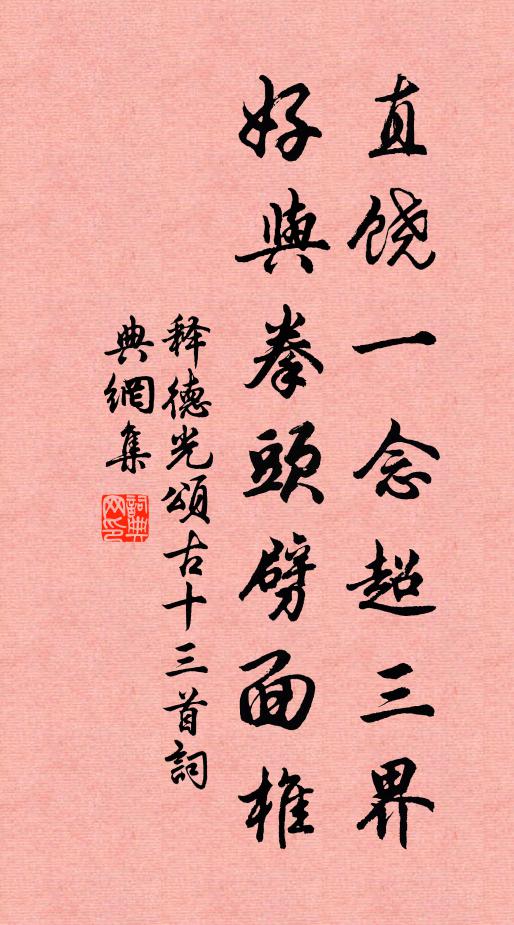 直饶一念超三界
好與拳頭劈面椎
释德光頌古十三首詞
典網集
詞典
网印